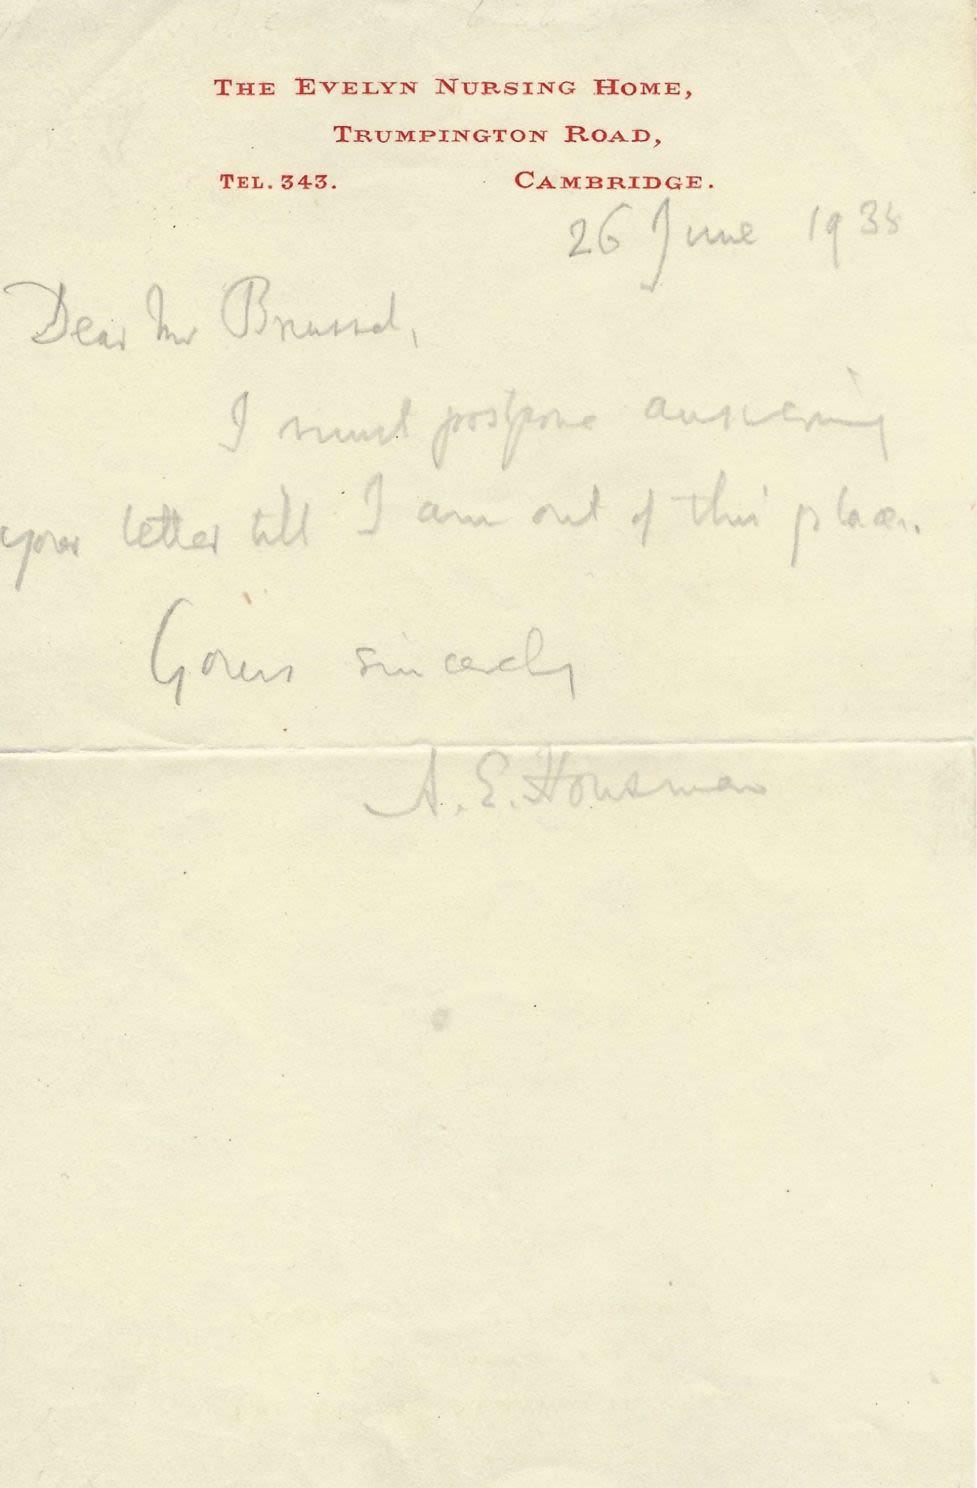 THE EVELYN NURSING HOME,
TRUMPINGTON ROAD,
TEL. 343. CAMBRIDGE.
26 June 1935
Dear Mr Brussel,
I must postpone answering
your letter till I am out of this place.
Yours sincerely
A. E. Housman